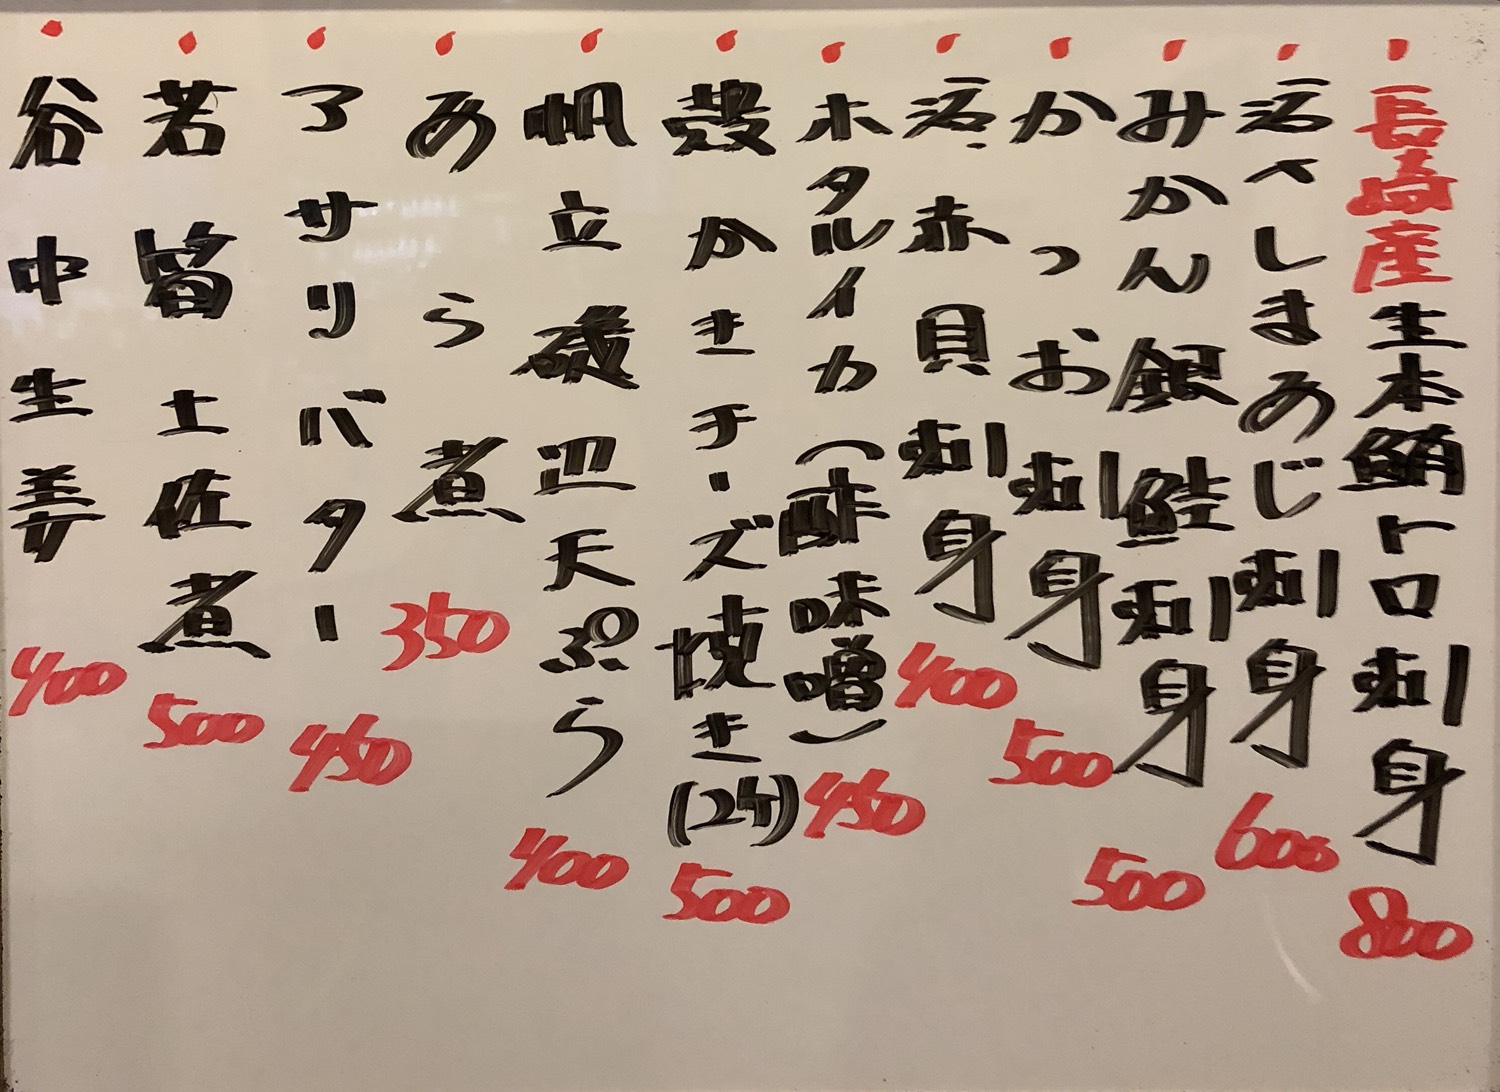 長崎産生本鮪トロ刺身 800
活〆しまあじ刺身 600
みかん銀鮭刺身 500
かつお刺身 500
活・赤貝刺身 400
ホタルイカ(酢味噌) 450
殻かきチーズ焼き(2ケ) 500
帆立磯辺天ぷら 400
あら煮 350
アサリバター 450
若筍土佐煮 500
谷中生姜 400